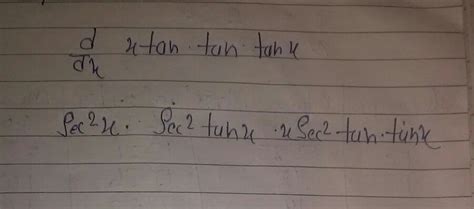 d/dx x tan · tan · tan x
Sec²x · Sec² tan x · x Sec² tan · tan x